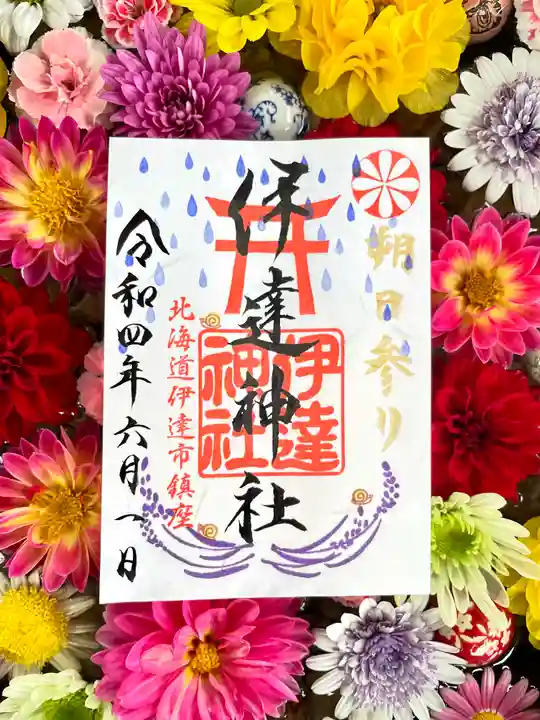 朔日参り
伊達神社
伊達神社
北海道伊達市鎮座
令和四年六月一日